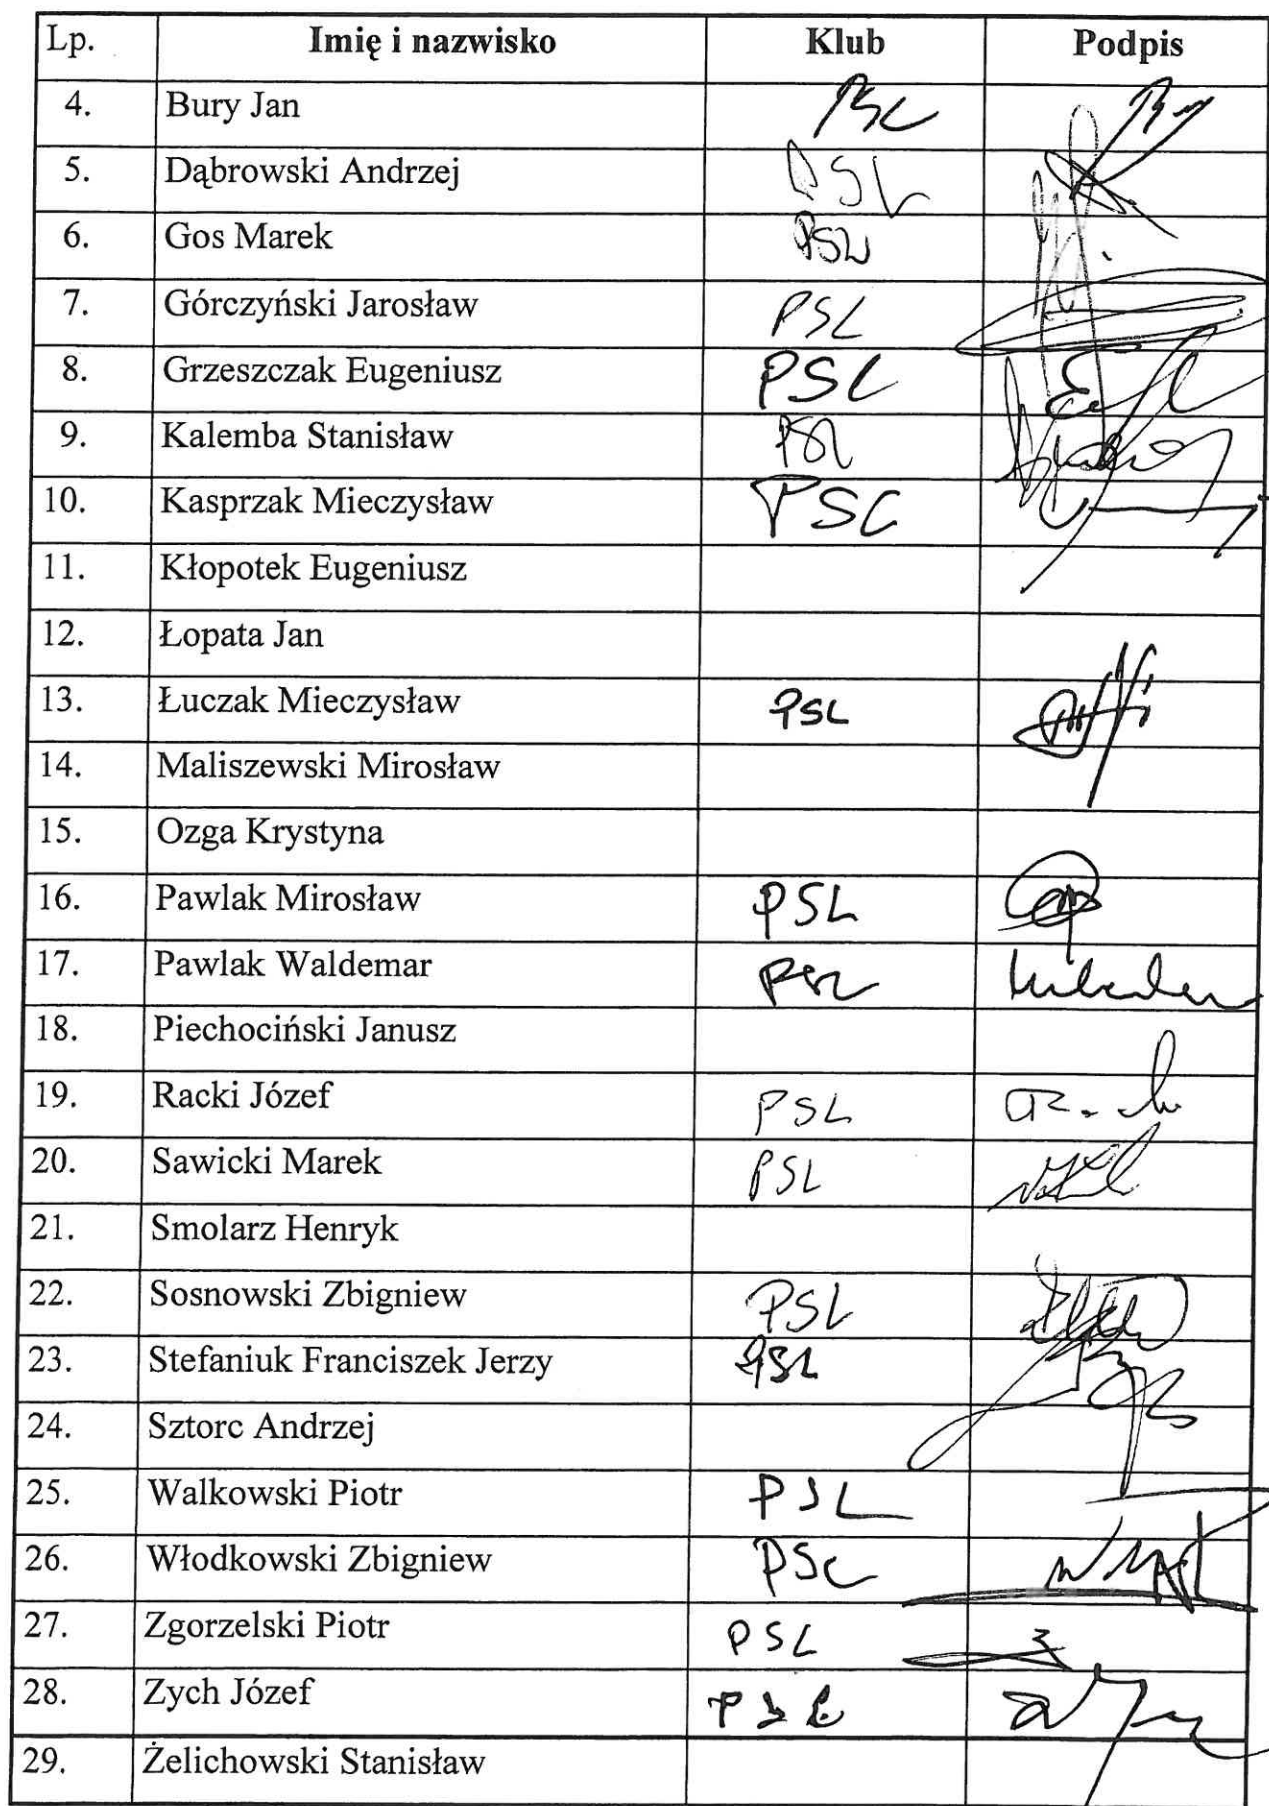 Lp. Imię i nazwisko Klub Podpis
4. Bury Jan PSL
5. Dąbrowski Andrzej PSL
6. Gos Marek PSL
7. Górczyński Jarosław PSL
8. Grzeszczak Eugeniusz PSL
9. Kalemba Stanisław PSL
10. Kasprzak Mieczysław PSL
11. Kłopotek Eugeniusz
12. Łopata Jan
13. Łuczak Mieczysław PSL
14. Maliszewski Mirosław
15. Ozga Krystyna
16. Pawlak Mirosław PSL
17. Pawlak Waldemar PSL
18. Piechociński Janusz
19. Racki Józef PSL
20. Sawicki Marek PSL
21. Smolarz Henryk
22. Sosnowski Zbigniew PSL
23. Stefaniuk Franciszek Jerzy PSL
24. Sztorc Andrzej
25. Walkowski Piotr PSL
26. Włodkowski Zbigniew PSL
27. Zgorzelski Piotr PSL
28. Zych Józef PSL
29. Żelichowski Stanisław